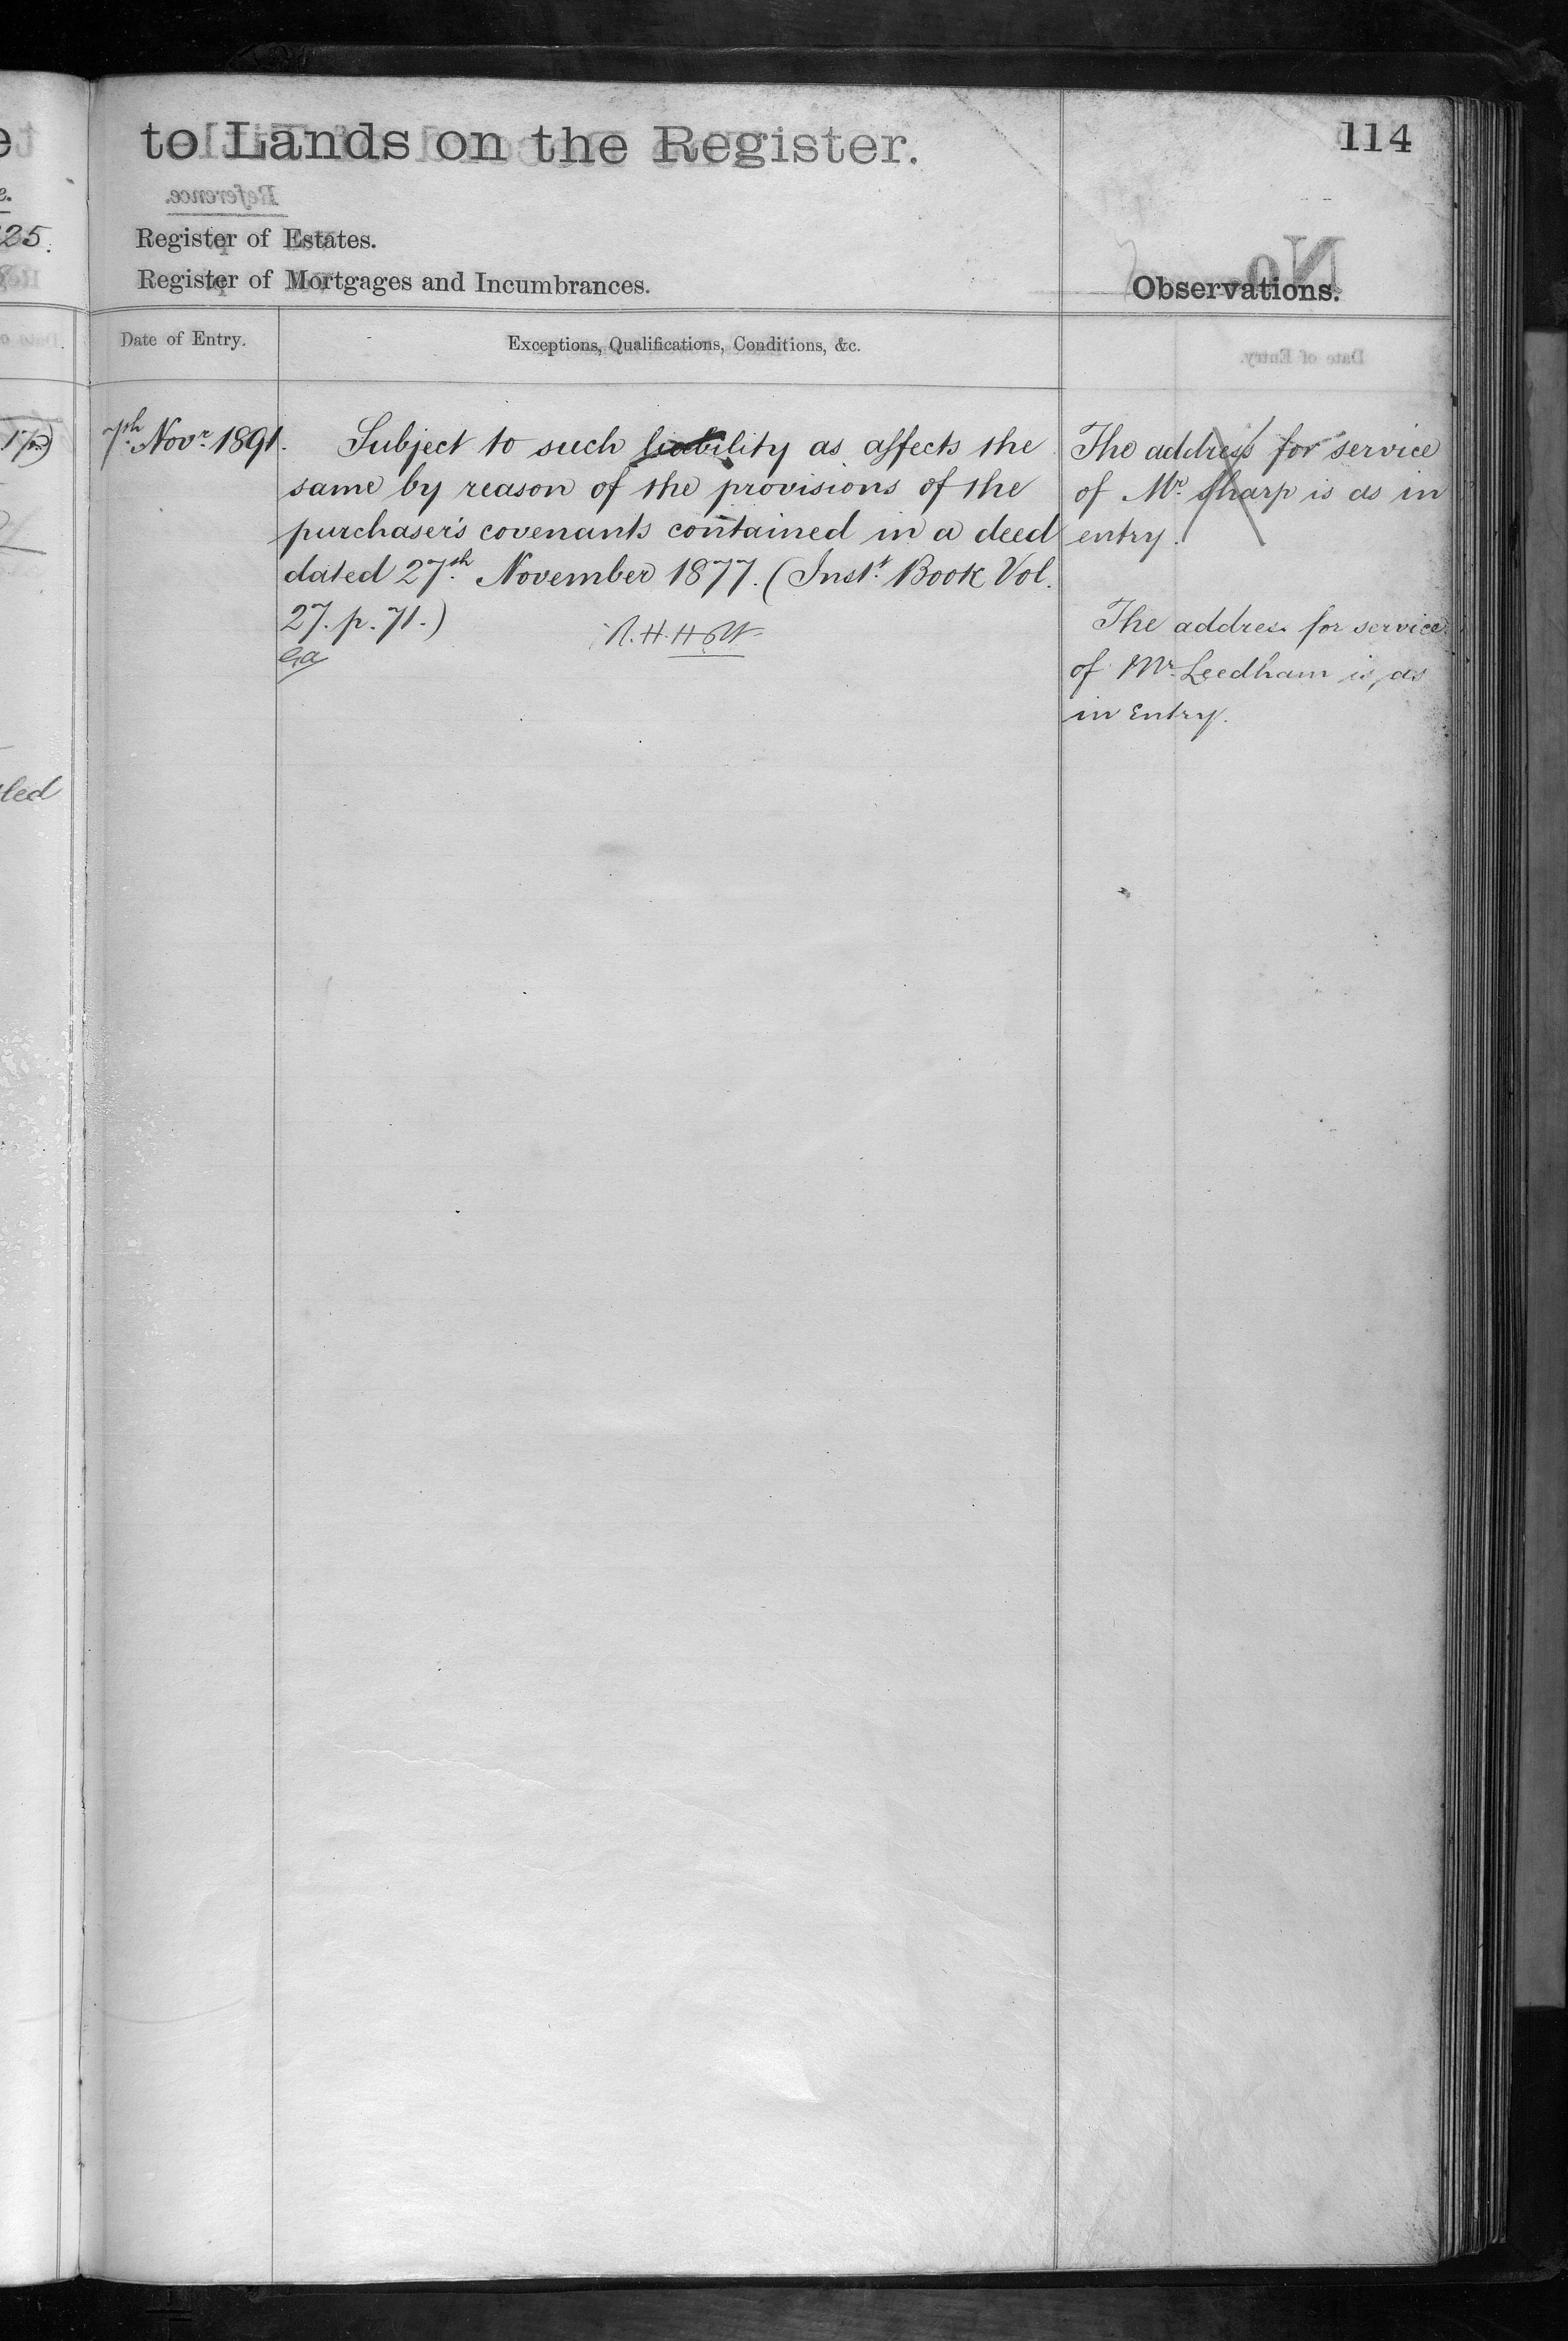 to Lands on the Register.
114
Register of Estates.
Register of Mortgages and Incumbrances.
Observations.
Date of Entry.
Exceptions, Qualifications, Conditions, &c.
7th Novr 1891.
Subject to such liability as affects the
same by reason of the provisions of the
purchaser's covenants contained in a deed
dated 27th November 1877. (Inst. Book Vol.
27. p. 71.)
The address for service
of Mr Sharp is as in
entry.
The address for service
of Mr Leedham is, as
in Entry.
25.
led